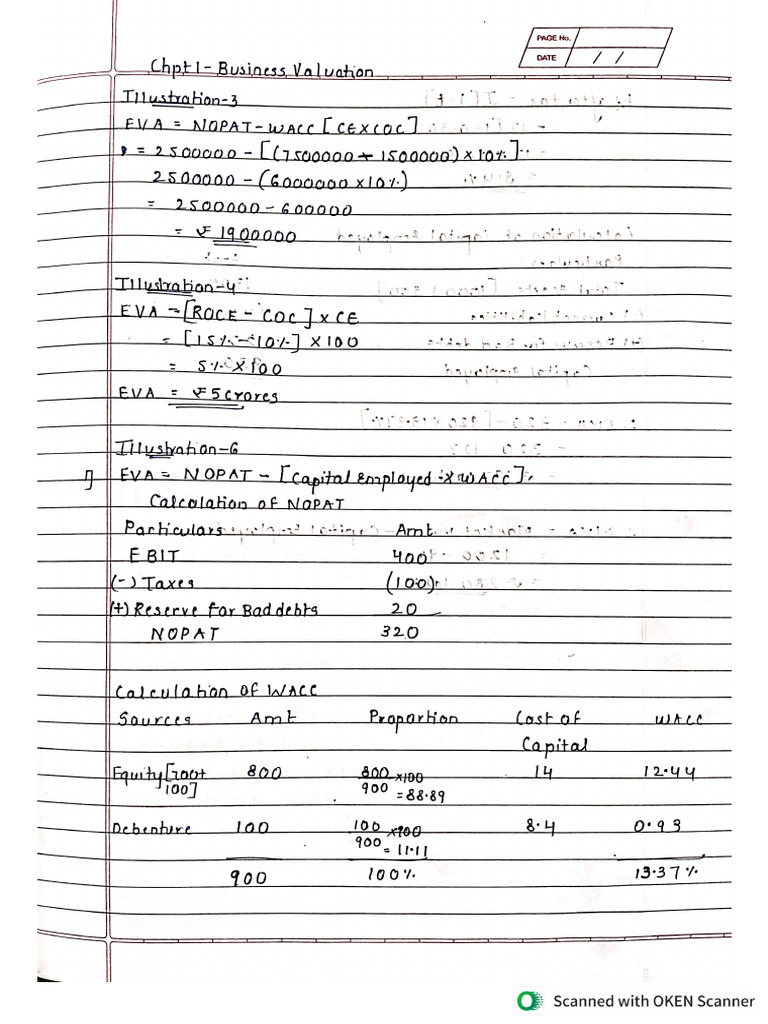 PAGE No.
DATE / /
Chpt 1 - Business Valuation
Illustration-3
EVA = NOPAT-WACC [CEXCOC]
= 2500000 - [(7500000 - 1500000) × 10%]
2500000 - (6000000 ×10%)
= 2500000 - 600000
= ₹ 1900000
Illustration-4
EVA = [ROCE - COC] × CE
= [15% - 10%] × 100
= 5% × 100
EVA = ₹ 5 crores
Illustration-6
1] EVA = NOPAT - [Capital Employed × WACC]
Calculation of NOPAT
Particulars Amt
EBIT 400
(-) Taxes (100)
(+) Reserve for Bad debts 20
NOPAT 320
Calculation of WACC
Sources Amt Proportion Cost of Capital WACC
Equity [700+100] 800 800/900 ×100 = 88.89 14 12.44
Debenture 100 100/900 ×100 = 11.11 8.4 0.93
900 100% 13.37%
Scanned with OKEN Scanner